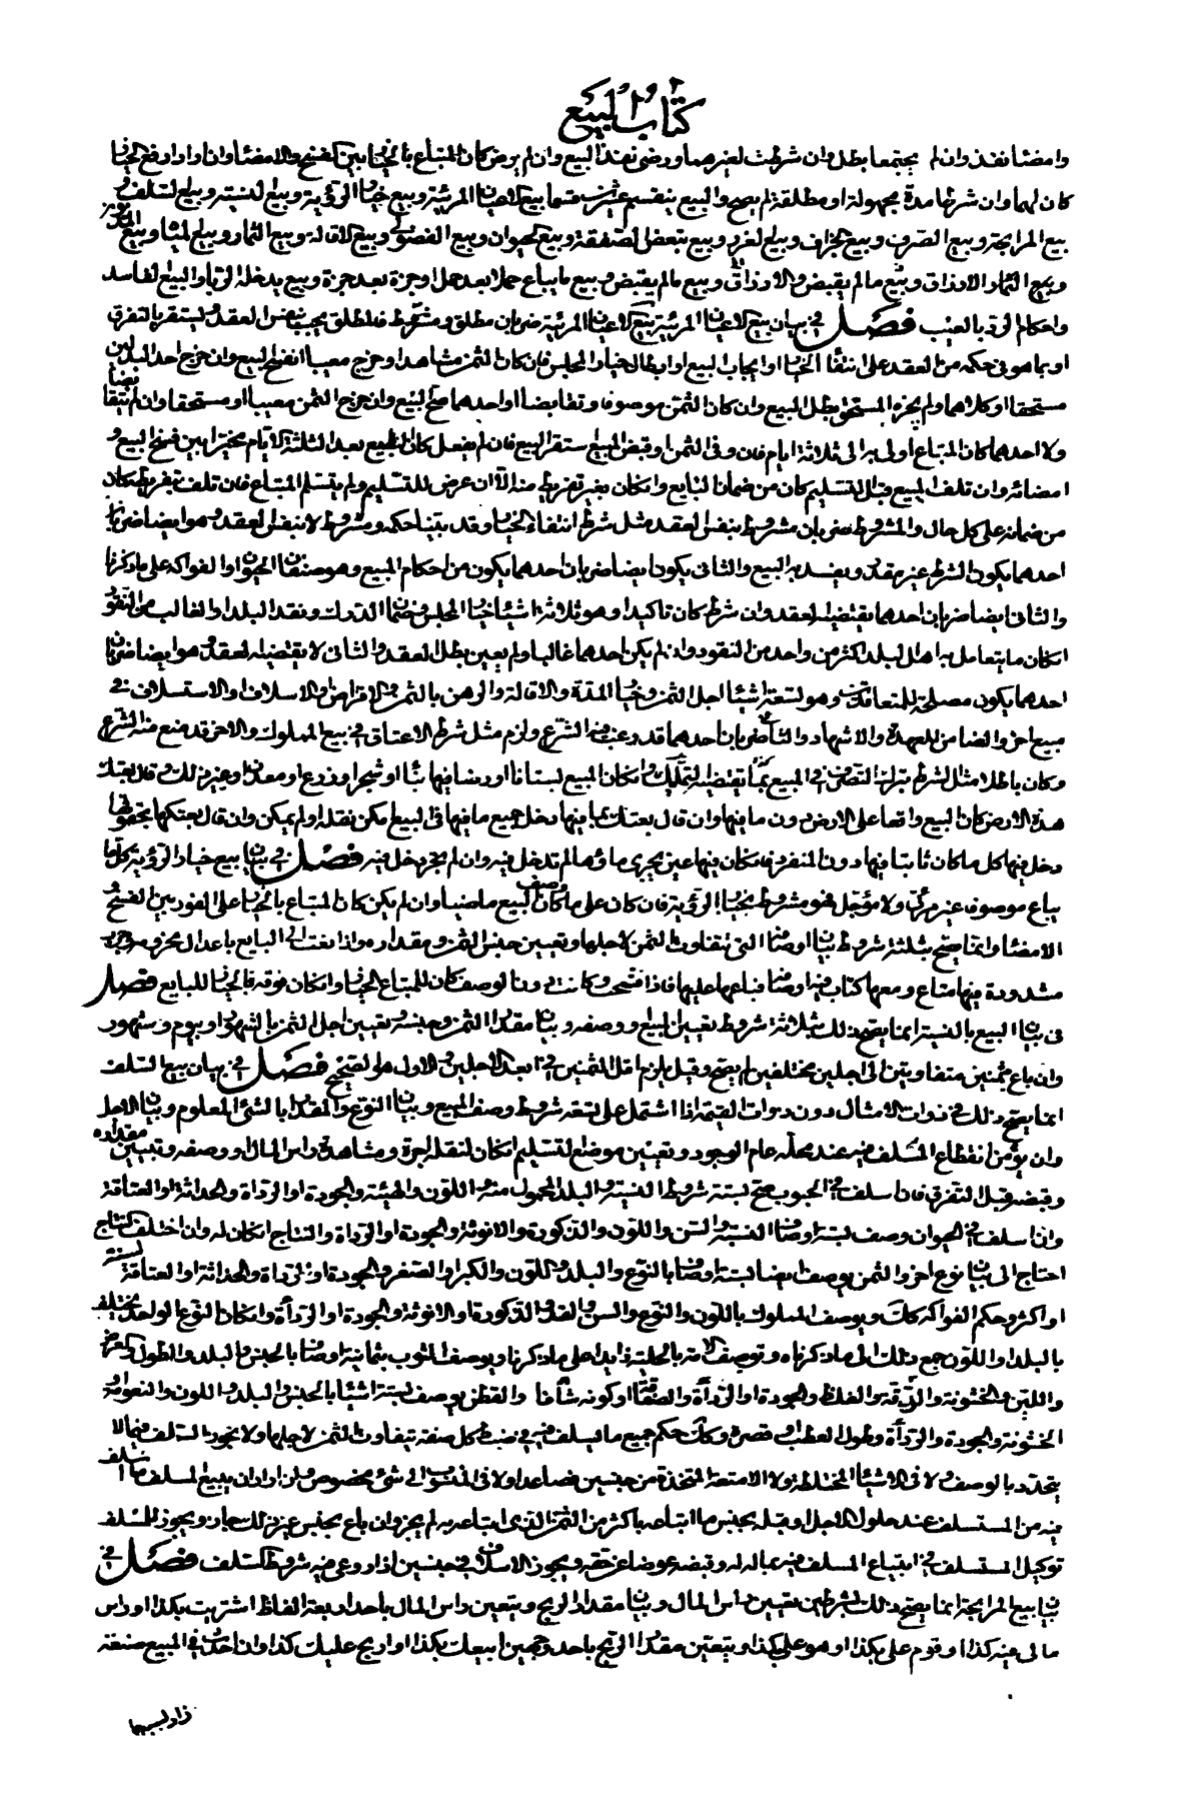 كتاب البيع
وامضيا نفذ وان لم يجتمعا بطل وان شرطت لغيرهما ورضى نفذ البيع وان لم يرض كان المبتاع بالخيار بين الفسخ والامضاء وان اراد رفع الخيار
كان لهما وان شرطا مدة مجهولة او مطلقة لم يصح والبيع ينقسم عشرين قسما بيع الاعيان المرئية وبيع خيار الرؤية وبيع النسيئة وبيع السلف و
بيع المرابحة وبيع الصرف وبيع الجزاف وبيع الغرر وبيع تبعض الصفقة وبيع الحيوان وبيع الفضولي وبيع الاقالة وبيع الثمار وبيع المياه وبيع
وبيع الثمار والارزاق وبيع مالم يقبض والارزاق وبيع مالم يقبض وبيع ما يباع حملا بعد حمل او جزة بعد جزة وبيع يدخله الربا والبيع الفاسد
واحكام الرد بالعيب فصل في بيان بيع الاعيان المرئية بيع الاعيان المرئية ضربان مطلق ومشروط فالمطلق يجب بنفس العقد ويستقر بالتفرق
او بما هو في حكمه من العقد على انتفاء الخيار او ايجاب البيع او ابطال خيار المجلس فان كان الثمن مشاهدا وخرج معيبا انفسخ البيع وان خرج احد البدلين
مستحقا او كلاهما ولم يجزه المستحق بطل البيع وان كان الثمن موصوفا وتقابضا او احدهما صح البيع وان خرج الثمن معيبا او مستحقا وان لم يتقابضا
ولا احدهما كان المبتاع اولى به الى ثلاثة ايام فان وفى الثمن او قبض المبيع استقر البيع فان لم يفعل كان البايع بعد الثلاثة الايام مخيرا بين فسخ البيع و
امضائه وان تلف المبيع قبل التسليم كان من ضمان البايع وان كان بغير تفريط منه الا ان عرض للتسليم ولم يتسلم المبتاع فان تلف بتفريط كان
من ضمانه على كل حال والمشروط ضربان مشروط بنفس العقد مثل شرط انتفاء الخيار وقد بينا حكمه ومشروط لا بنفس العقد وهو ايضا ضربان
احدهما يكون الشرط غير مقدور يفسد به البيع والثاني يكون ايضا ضربان احدهما يكون من احكام المبيع وهو صنفان الحيوان والفواكه على ما ذكرنا
والثاني ايضا ضربان احدهما يقتضيه العقد وان شرط كان تاكيدا وهو ثلاثة اشياء خيار المجلس وضمان الدرك ونقد البلد او الغالب من النقود
ان كان ما يتعامل به اهل البلد اكثر من واحد من النقود وان لم يكن احدهما غالبا ولم يعين بطل العقد والثاني لا يقتضيه العقد وهو ايضا ضربان
احدهما يكون مصلحة للمتعاقدين وهو تسعة اشياء اجل الثمن وخيار المدة والاقالة والرهن بالثمن والاقراض والاسلاف والاستسلاف في
مبيع اخر والضامن للعهدة والاشهاد والثاني ضربان احدهما قد رغب فيه الشرع ولزم مثل شرط الاعتاق في بيع المملوك والاخر قد منع منه الشرع
وكان باطلا مثل الشرط بترك التصرف في المبيع بما يقتضيه التمليك وان كان المبيع بستانا او ارضا فيها بناء او شجر او زرع او معدن او غير ذلك وقال بعتك
هذه الارض كان البيع واقعا على الارض دون ما فيها وان قال بعتك بما فيها دخل جميع ما فيها في البيع امكن نقله او لم يمكن وان قال بعتكها بحقوقها
دخل فيها كل ما كان ثابتا فيها دون المنفرد فان كان فيها عين يجري ماؤها لم تدخل فيه وان لم يجر دخل فيه فصل في بيان بيع خيار الرؤية كل ما
يباع موصوف غير مرئي ولا مؤجل فهو مشروط بخيار الرؤية فان كان على ما كان وصف المبيع ماضيا وان لم يكن كان المبتاع بالخيار على الفور بين الفسخ و
الامضاء وانما يصح بثلثة شروط بيان اوصافه التي يتفاوت الثمن لاجلها وتعيين جنس الثمن ومقداره واذا بعث الى البايع باعدال محزومة وجرب
مشدودة فيها متاع ومعها كتاب فيه اوصافه فباعها عليها فاذا فتحت وكانت دون الوصف كان للمبتاع الخيار وان كان فوقه فالخيار للبايع فصل
في بيان البيع بالنسيئة انما يصح ذلك بثلاثة شروط تعيين المبيع او وصفه وبيان مقدار الثمن وجنسه وتعيين اجل الثمن بالشهور او بيوم مشهور
وان باع بثمنين متفاوتين الى اجلين مختلفين لم يصح وقيل يلزم اقل الثمنين في ابعد الاجلين والاول هو الصحيح فصل في بيان بيع السلف
انما يصح ذلك في ذوات الامثال دون ذوات القيمة اذا اشتمل على تسعة شروط وصف المبيع وبيان النوع والمقدار بالشئ المعلوم وبيان الاجل
وان يؤمن انقطاع المسلف فيه عند محله عام الوجود وتعيين موضع التسليم ان كان لنقله اجرة ومشاهدة راس المال او وصفه وتبيين مقداره
وقبضه قبل التفرق فان اسلف في الحبوب صح بستة شروط النسبة والبلد المحمول منه واللون والهيئة والجودة او الرداءة والحداثة او العتاقة
وان اسلف في الحيوان وصف بستة اوصاف النسبة والسن واللون والذكورة والانوثة والجودة او الرداءة والنتاج ان كان له وان اختلف النتاج
احتاج الى بيان نوع اخر والثمن يوصف ايضا بستة اوصاف بالنوع والبلد واللون والكبر او الصغر والجودة او الرداءة والحداثة او العتاقة لسنة
او اكثر وحكم الفواكه كذلك ويوصف المملوك باللون والنوع والسن والقد والذكورة او الانوثة والجودة او الرداءة وان كان النوع الواحد يختلف
بالبلد او اللون جمع ذلك الى ما ذكرناه وتوصف الامة بالحلية زايدا على ما ذكرنا ويوصف الثوب بثمانية اوصاف بالجنس والبلد والطول والعرض
واللين والخشونة والرقة والغلظ والجودة او الرداءة والصفاقة او كونه شافا والقطن يوصف بستة اشياء بالجنس والبلد واللون والنعومة او
الخشونة والجودة او الرداءة وطول العطب او قصره وكذلك حكم جميع ما يسلف فيه في ضبط كل صفة يتفاوت الثمن لاجلها ولا يجوز السلف فيما لا
يتحدد بالوصف ولا في الاشياء المختلطة ولا الامتعة المتخذة من جنسين فصاعدا ولا في المنسوب الى شئ مخصوص وان اراد ان يبيع المسلف ما اسلف
فيه من المستسلف عند حلول الاجل او قبله بجنس ما ابتاعه باكثر من الثمن الذي ابتاعه به لم يجز وان باع بجنس غير ذلك جاز ويجوز للمسلف
توكيل المستسلف في ابتياع المسلف فيه بماله له وقبضه عوضا عن حقه ويجوز الاسلاف في جنسين اذا روعي فيه شروط السلف فصل في
بيان بيع المرابحة انما يصح ذلك بشرطين تعيين راس المال وبيان مقدار الربح ويتعين راس المال باحد اربعة الفاظ اشتريت بكذا او راس
مالي فيه كذا او قوم علي بكذا او هو علي بكذا ويتعين مقدار الربح باحد وجهين ابيعك بكذا او اربح عليك كذا وان احدث في المبيع صنعة
زاد بسببها